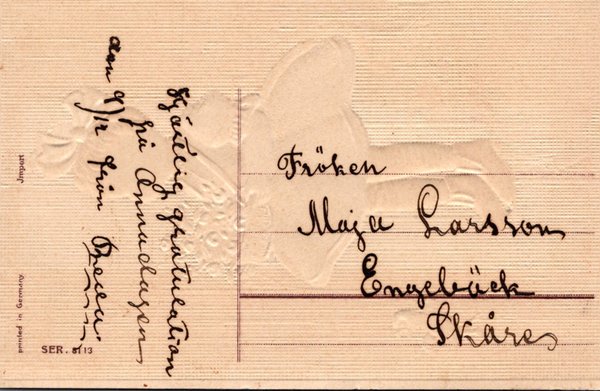 Hjärtlig gratulation
på Annadagen
den 9/12 från
Fröken
Maja Larsson
Engelbäck
Skåre
Jmport
printed in Germany
SER. 8113